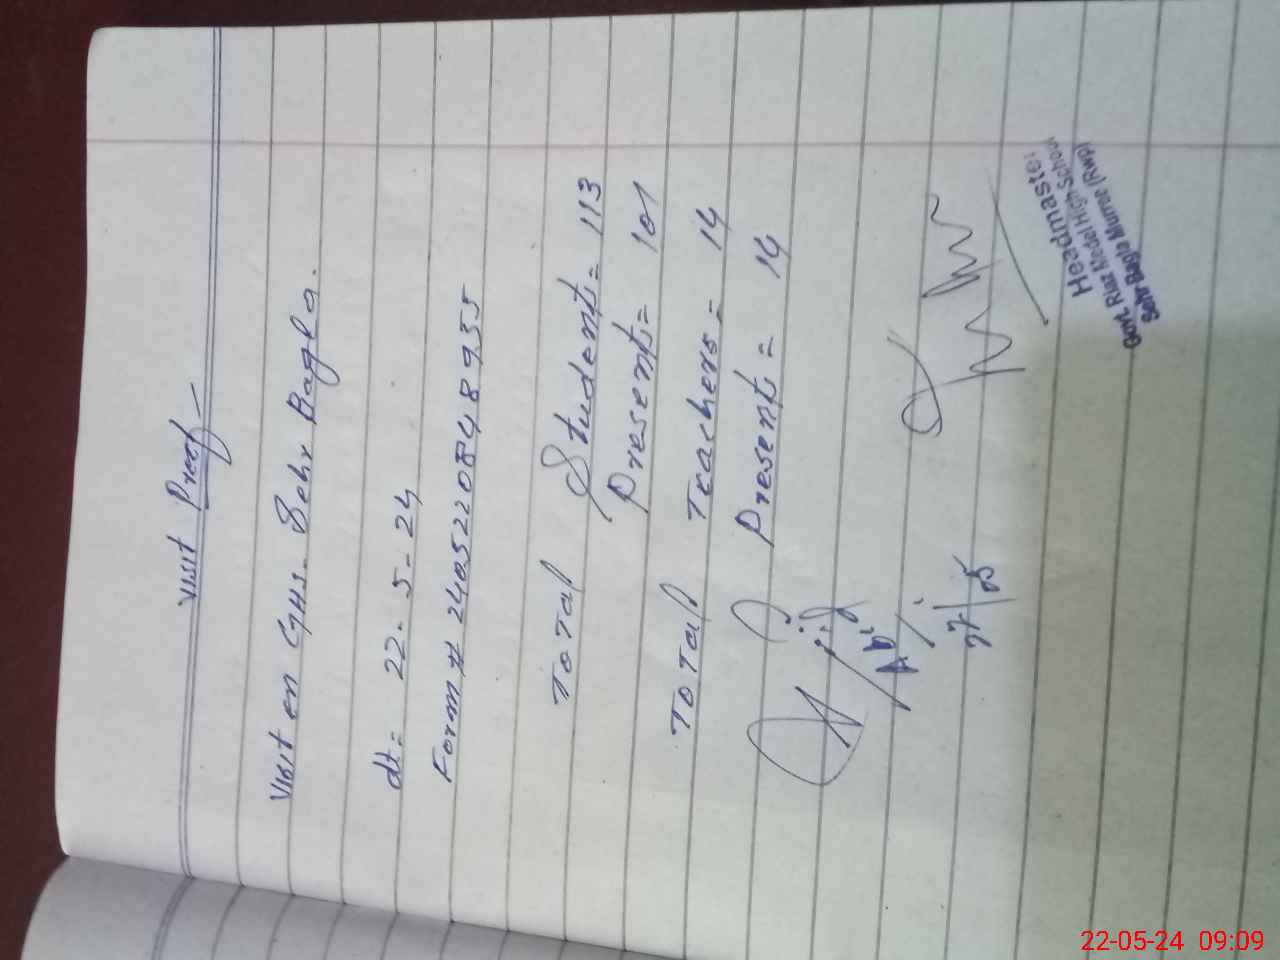 Visit Proof
Visit en GHS. Sehr Bagla.
dt= 22-5-24
Form # 2405220848955
ToTal Students= 113
Presents= 101
ToTal Teachers= 14
Presents= 14
Abid
Headmaster
Govt. Riaz Model High School
Sehr Bagla Murree (Rwp)
22-05-24 09:09